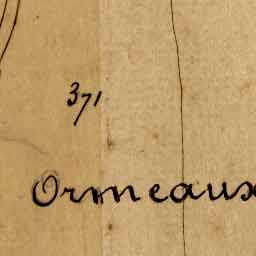 371
Ormeaux